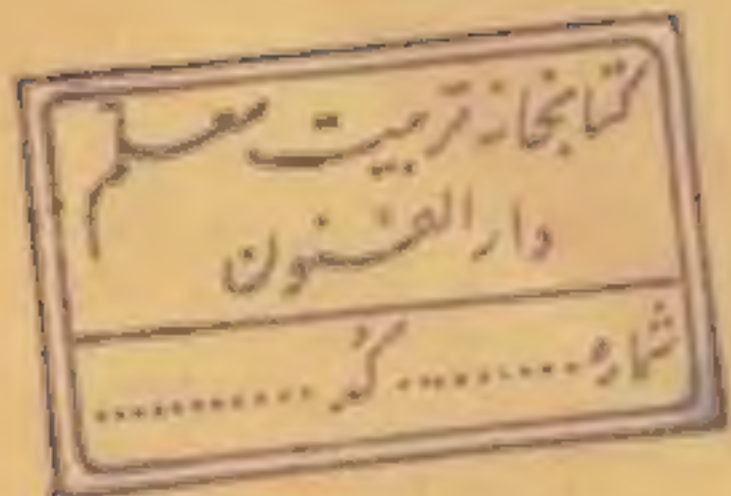 کتابخانه تربیت معلم
دارالفنون
شماره ........... کد ............